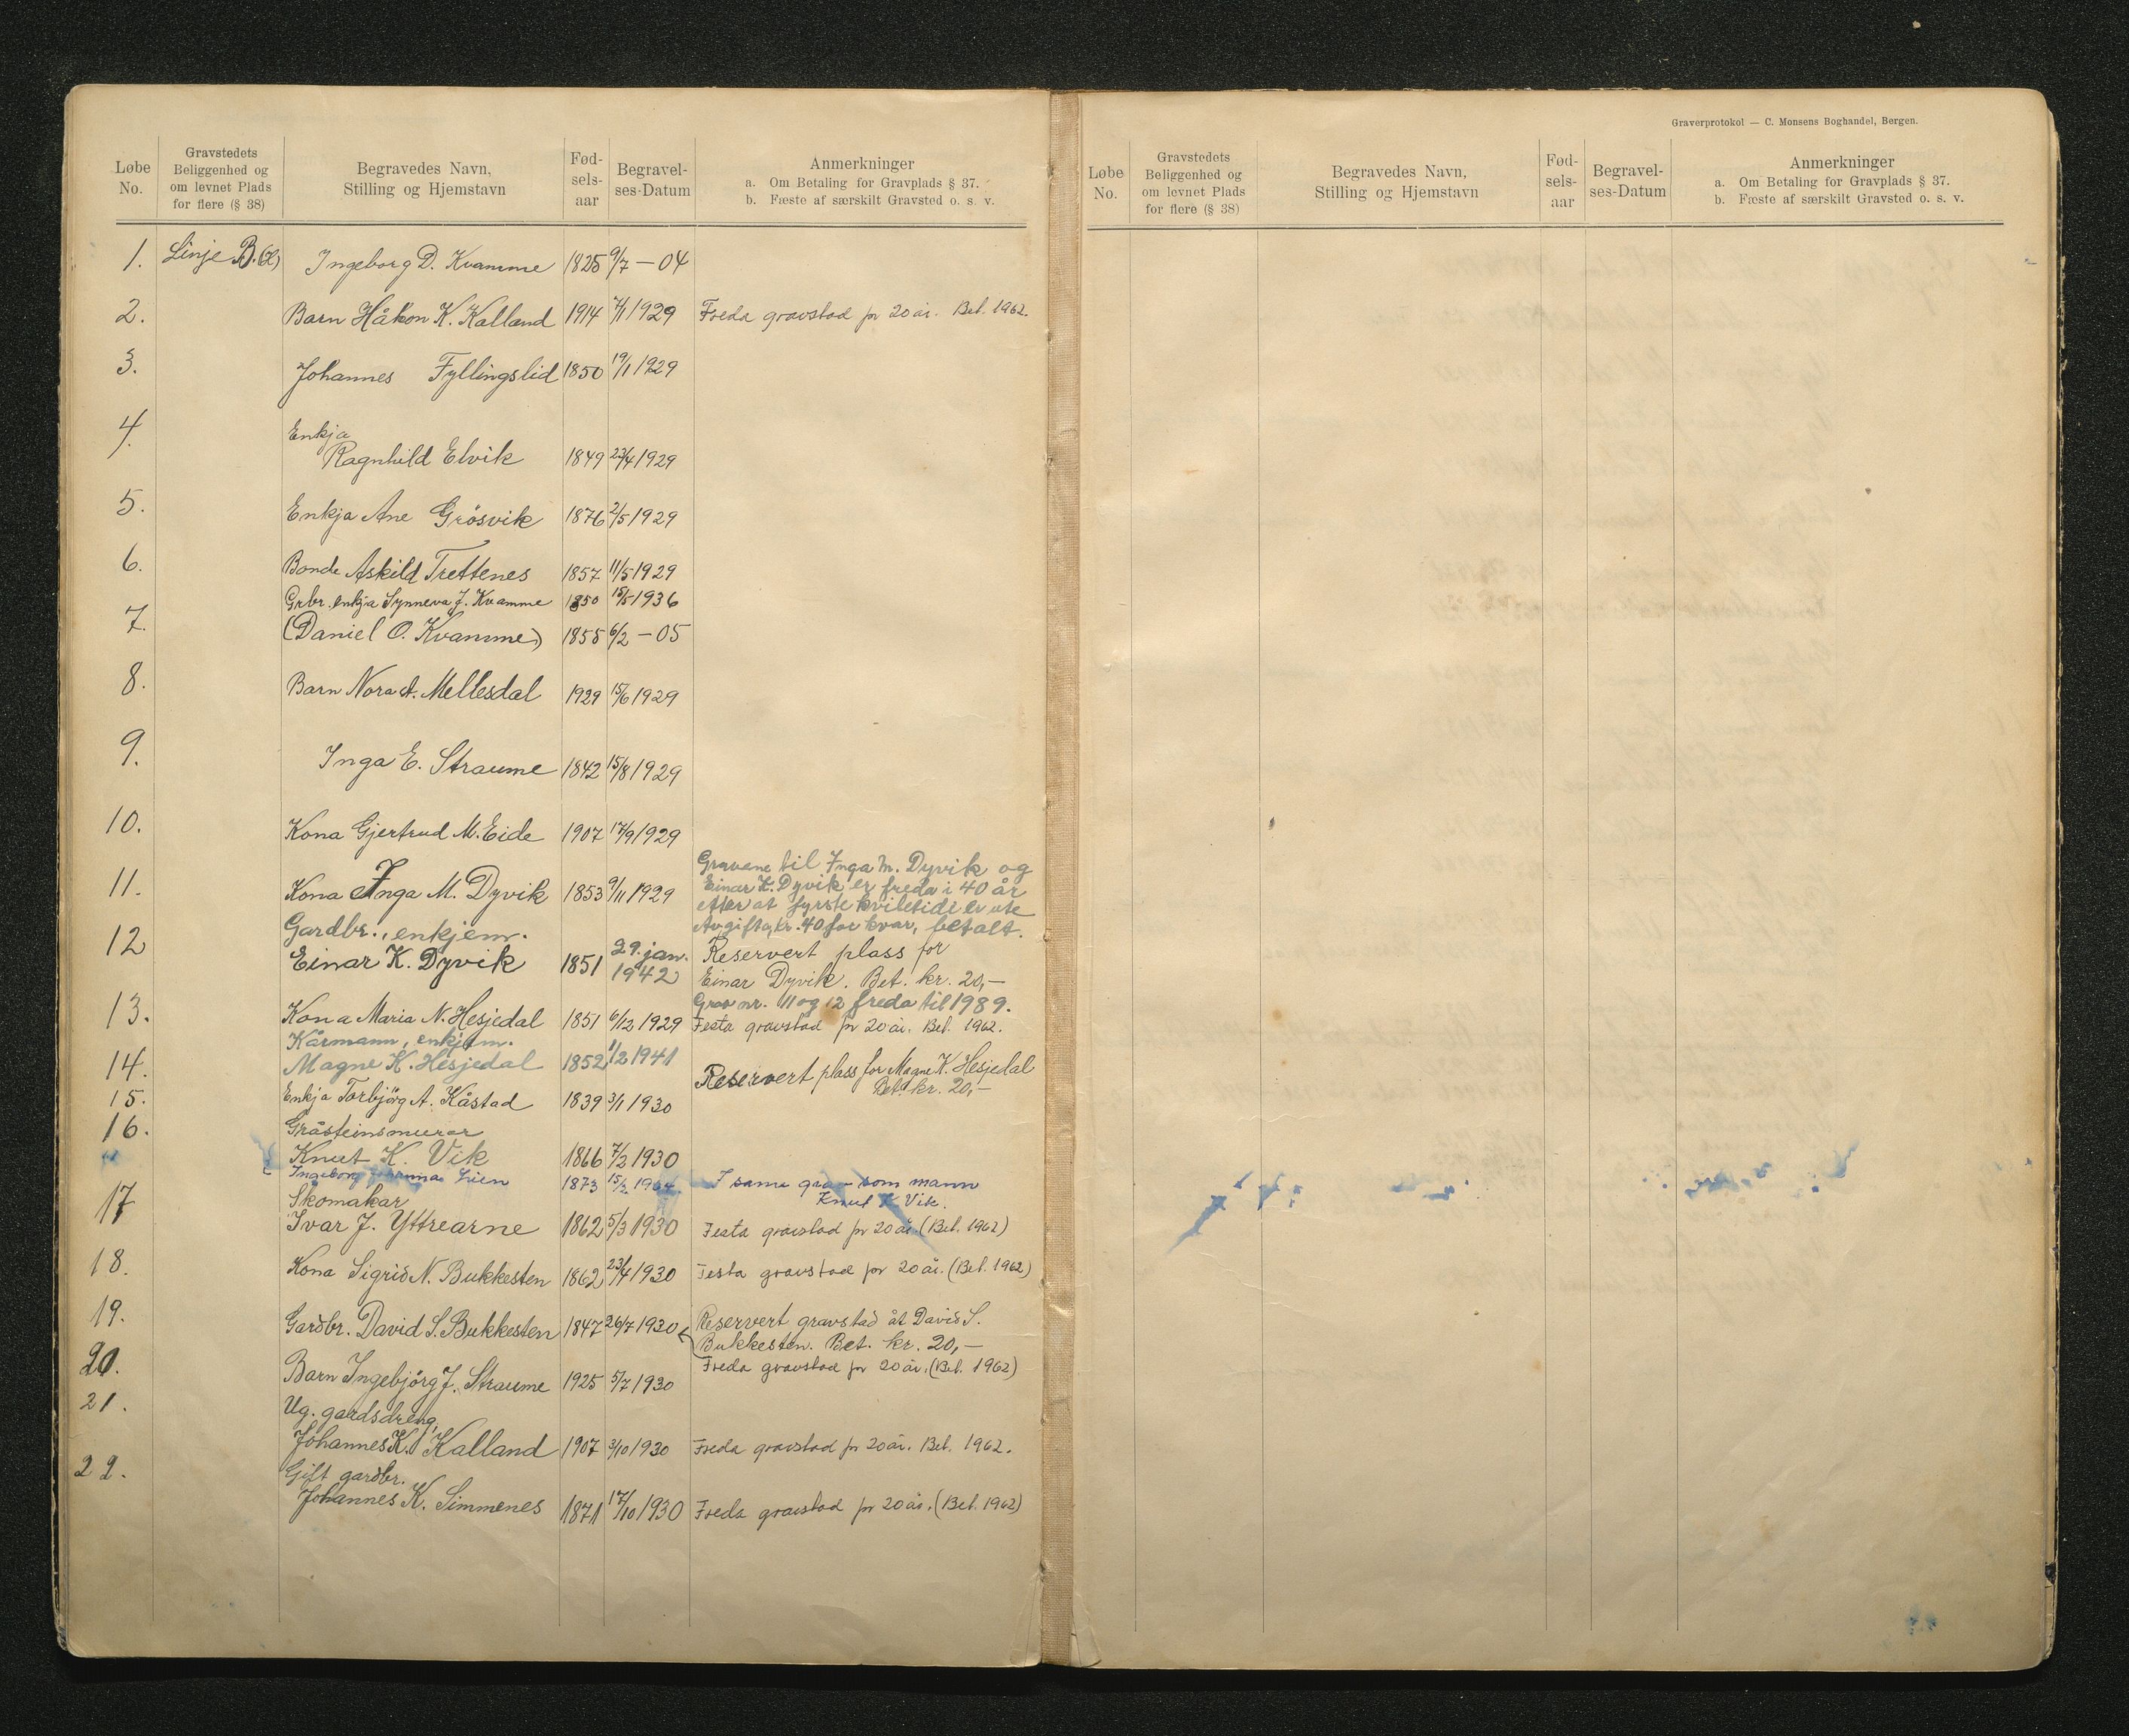 Løbe No.
Gravstedets Beliggenhed og om levnet Plads for flere (§ 38)
Begravedes Navn, Stilling og Hjemstavn
Fød-sels-aar
Begravel-ses-Datum
Anmerkninger
a. Om Betaling for Gravplads § 37.
b. Fæste af særskilt Gravsted o. s. v.
1. Linje B. Ingeborg D. Kvamme 1825 9/7 – 04
2. Barn Håkon K. Kalland 1914 7/1 1929 Freda gravstad pr 20 år. Bet. 1962.
3. Johannes Fyllingslid 1850 19/1 1929
4. Enkja
Ragnhild Elvik 1849 23/4 1929
5. Enkja Ane Grösvik 1876 2/5 1929
6. Bonde Askild Trettenes 1857 11/5 1929
Grbr. enkja Synneva J. Kvamme 1850 15/5 1936
7. (Daniel O. Kvamme) 1855 6/2 – 05
8. Barn Nora A. Mellesdal 1929 15/6 1929
9. Inga E. Straume 1842 15/8 1929
10. Kona Gjertrud M. Eide 1907 17/9 1929
Gravene til Inga M. Dyvik og
11. Kona Inga M. Dyvik 1853 9/11 1929 Einar K. Dyvik er freda i 40 år
etter at fyrste kviletidi er ute
Gardbr., enkjem. Avgifta, kr. 40 for kvar, betalt.
12 Einar K. Dyvik 1851 29. jan. 1942 Reservert plass for
Einar Dyvik. Bet. kr. 20,—
Grav nr. 11 og 12 freda til 1989.
13. Kona Maria N. Hesjedal 1851 6/12 1929 Festa gravstad pr 20 år. Bet. 1962.
Kårmann, enkjem.
14. Magne K. Hesjedal 1852 1/2 1941 Reservert plass for Magne K. Hesjedal
Bet. kr. 20,—
15. Enkja Torbjörg A. Kåstad 1839 3/1 1930
16. Gråsteinsmurar
Knut K. Vik 1866 7/2 1930
Ingeborg Lien 1873 I same grav som mann
Knut K Vik.
17 Skomakar
Ivar J. Yttrearne 1862 5/3 1930 Festa gravstad pr 20 år. (Bet. 1962)
18. Kona Sigrid N. Bukkesten 1862 23/4 1930 Festa gravstad pr 20 år. (Bet. 1962)
19. Gardbr. David S. Bukkesten 1847 26/7 1930 Reservert gravstad åt David S.
Bukkesten. Bet. kr. 20,—
Freda gravstad pr 20 år. (Bet. 1962)
20. Barn Ingebjörg J. Straume 1925 5/7 1930
21. Ug. gardsdreng,
Johannes K. Kalland 1907 3/10 1930 Freda gravstad pr 20 år. Bet. 1962.
22. Gift gardbr.
Johannes K. Simmenes 1871 17/10 1930 Freda gravstad pr 20 år. (Bet. 1962)
Graverprotokol — C. Monsens Boghandel, Bergen.
Løbe No.
Gravstedets Beliggenhed og om levnet Plads for flere (§ 38)
Begravedes Navn, Stilling og Hjemstavn
Fød-sels-aar
Begravel-ses-Datum
Anmerkninger
a. Om Betaling for Gravplads § 37.
b. Fæste af særskilt Gravsted o. s. v.